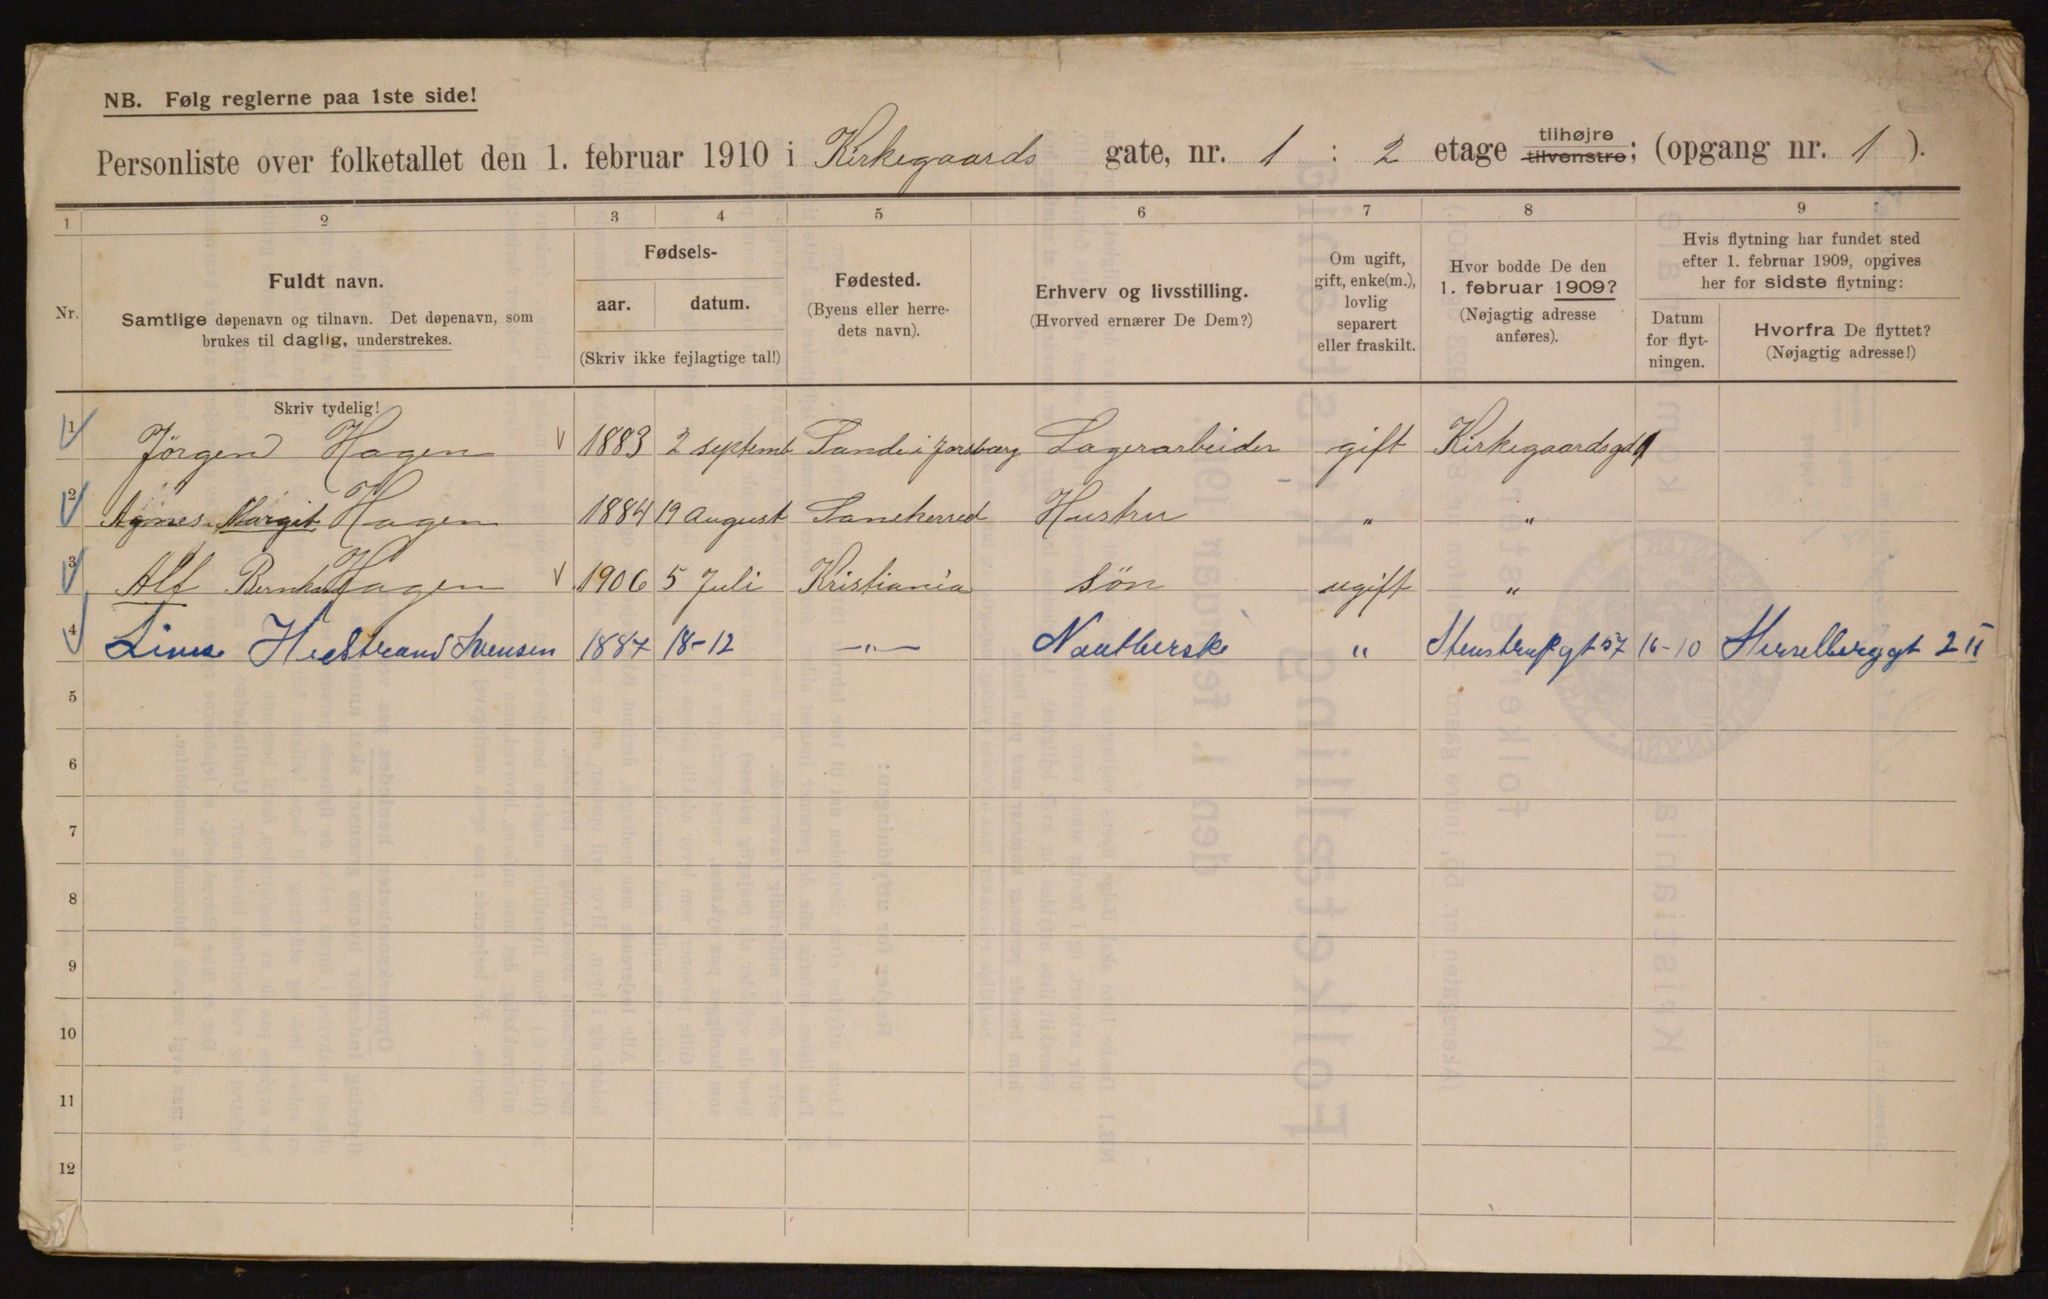 NB. Følg reglerne paa 1ste side!
Personliste over folketallet den 1. februar 1910 i Kirkegaards gate, nr. 1 : 2 etage tilhøjre tilvenstre; (opgang nr. 1 ).
1 2 3 4 5 6 7 8 9
Nr.
Fuldt navn.
Samtlige døpenavn og tilnavn. Det døpenavn, som
brukes til daglig, understrekes.
Skriv tydelig!
Fødsels-
aar. datum.
(Skriv ikke fejlagtige tal!)
Fødested.
(Byens eller herre-
dets navn).
Erhverv og livsstilling.
(Hvorved ernærer De Dem?)
Om ugift,
gift, enke(m.),
lovlig
separert
eller fraskilt.
Hvor bodde De den
1. februar 1909?
(Nøjagtig adresse
anføres).
Hvis flytning har fundet sted
efter 1. februar 1909, opgives
her for sidste flytning:
Datum
for flyt-
ningen.
Hvorfra De flyttet?
(Nøjagtig adresse!)
1 Jørgen Hagen 1883 2 septemb Sande i Jarsbærg Lagerarbeider gift Kirkegaardsgd 1
2 Agnes Margit Hagen 1884 19 August Sandeherred Hustru " "
3 Alf Bernhard Hagen 1906 5 Juli Kristiania søn ugift "
4 Svensen 1887 18-12 —"— " Stenstrupgt 57 16-10 2 II
5
6
7
8
9
10
11
12